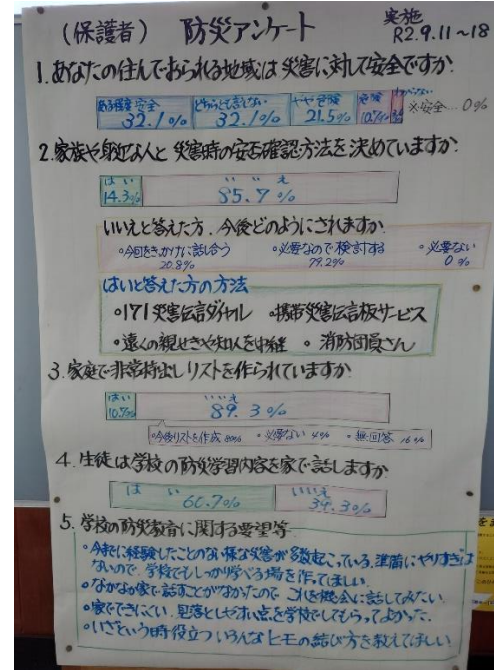 (保護者) 防災アンケート 実施 R2.9.11~18
1. あなたの住んでおられる地域は 災害に対して安全ですか.
ある程度安全 32.1% どちらとも言えない 32.1% やや危険 21.5% 危険 10.7% わからない ※安全… 0%
2. 家族や身近な人と 災害時の安否確認方法を決めていますか.
はい 14.3% いいえ 85.7%
いいえと答えた方. 今後どのようにされますか.
・今回をきっかけに話し合う ・必要なので検討する ・必要ない
20.8% 79.2% 0%
はいと答えた方の方法
・171災害伝言ダイヤル ・携帯災害伝言板サービス
・遠くの親せきや知人を中継 ・消防団員さん
3. 家庭で非常持出しリストを作られていますか
はい 10.7% いいえ 89.3%
・今後リストを作成 80% ・必要ない 4% ・無回答 16%
4. 生徒は学校の防災学習内容を家で話しますか
はい 60.7% いいえ 39.3%
5. 学校の防災教育に関する要望等
・今までに経験したことのない様な災害が多数起こっている。準備にやりすぎは
ないので、学校でもしっかり学べる場を作ってほしい.
・なかなか家で話すことがなかったので これを機会に話してみたい.
・家でできにくい、見落としやすい点を学校でしてもらってよかった.
・いざという時役立つ いろんなヒモの結び方を教えてほしい